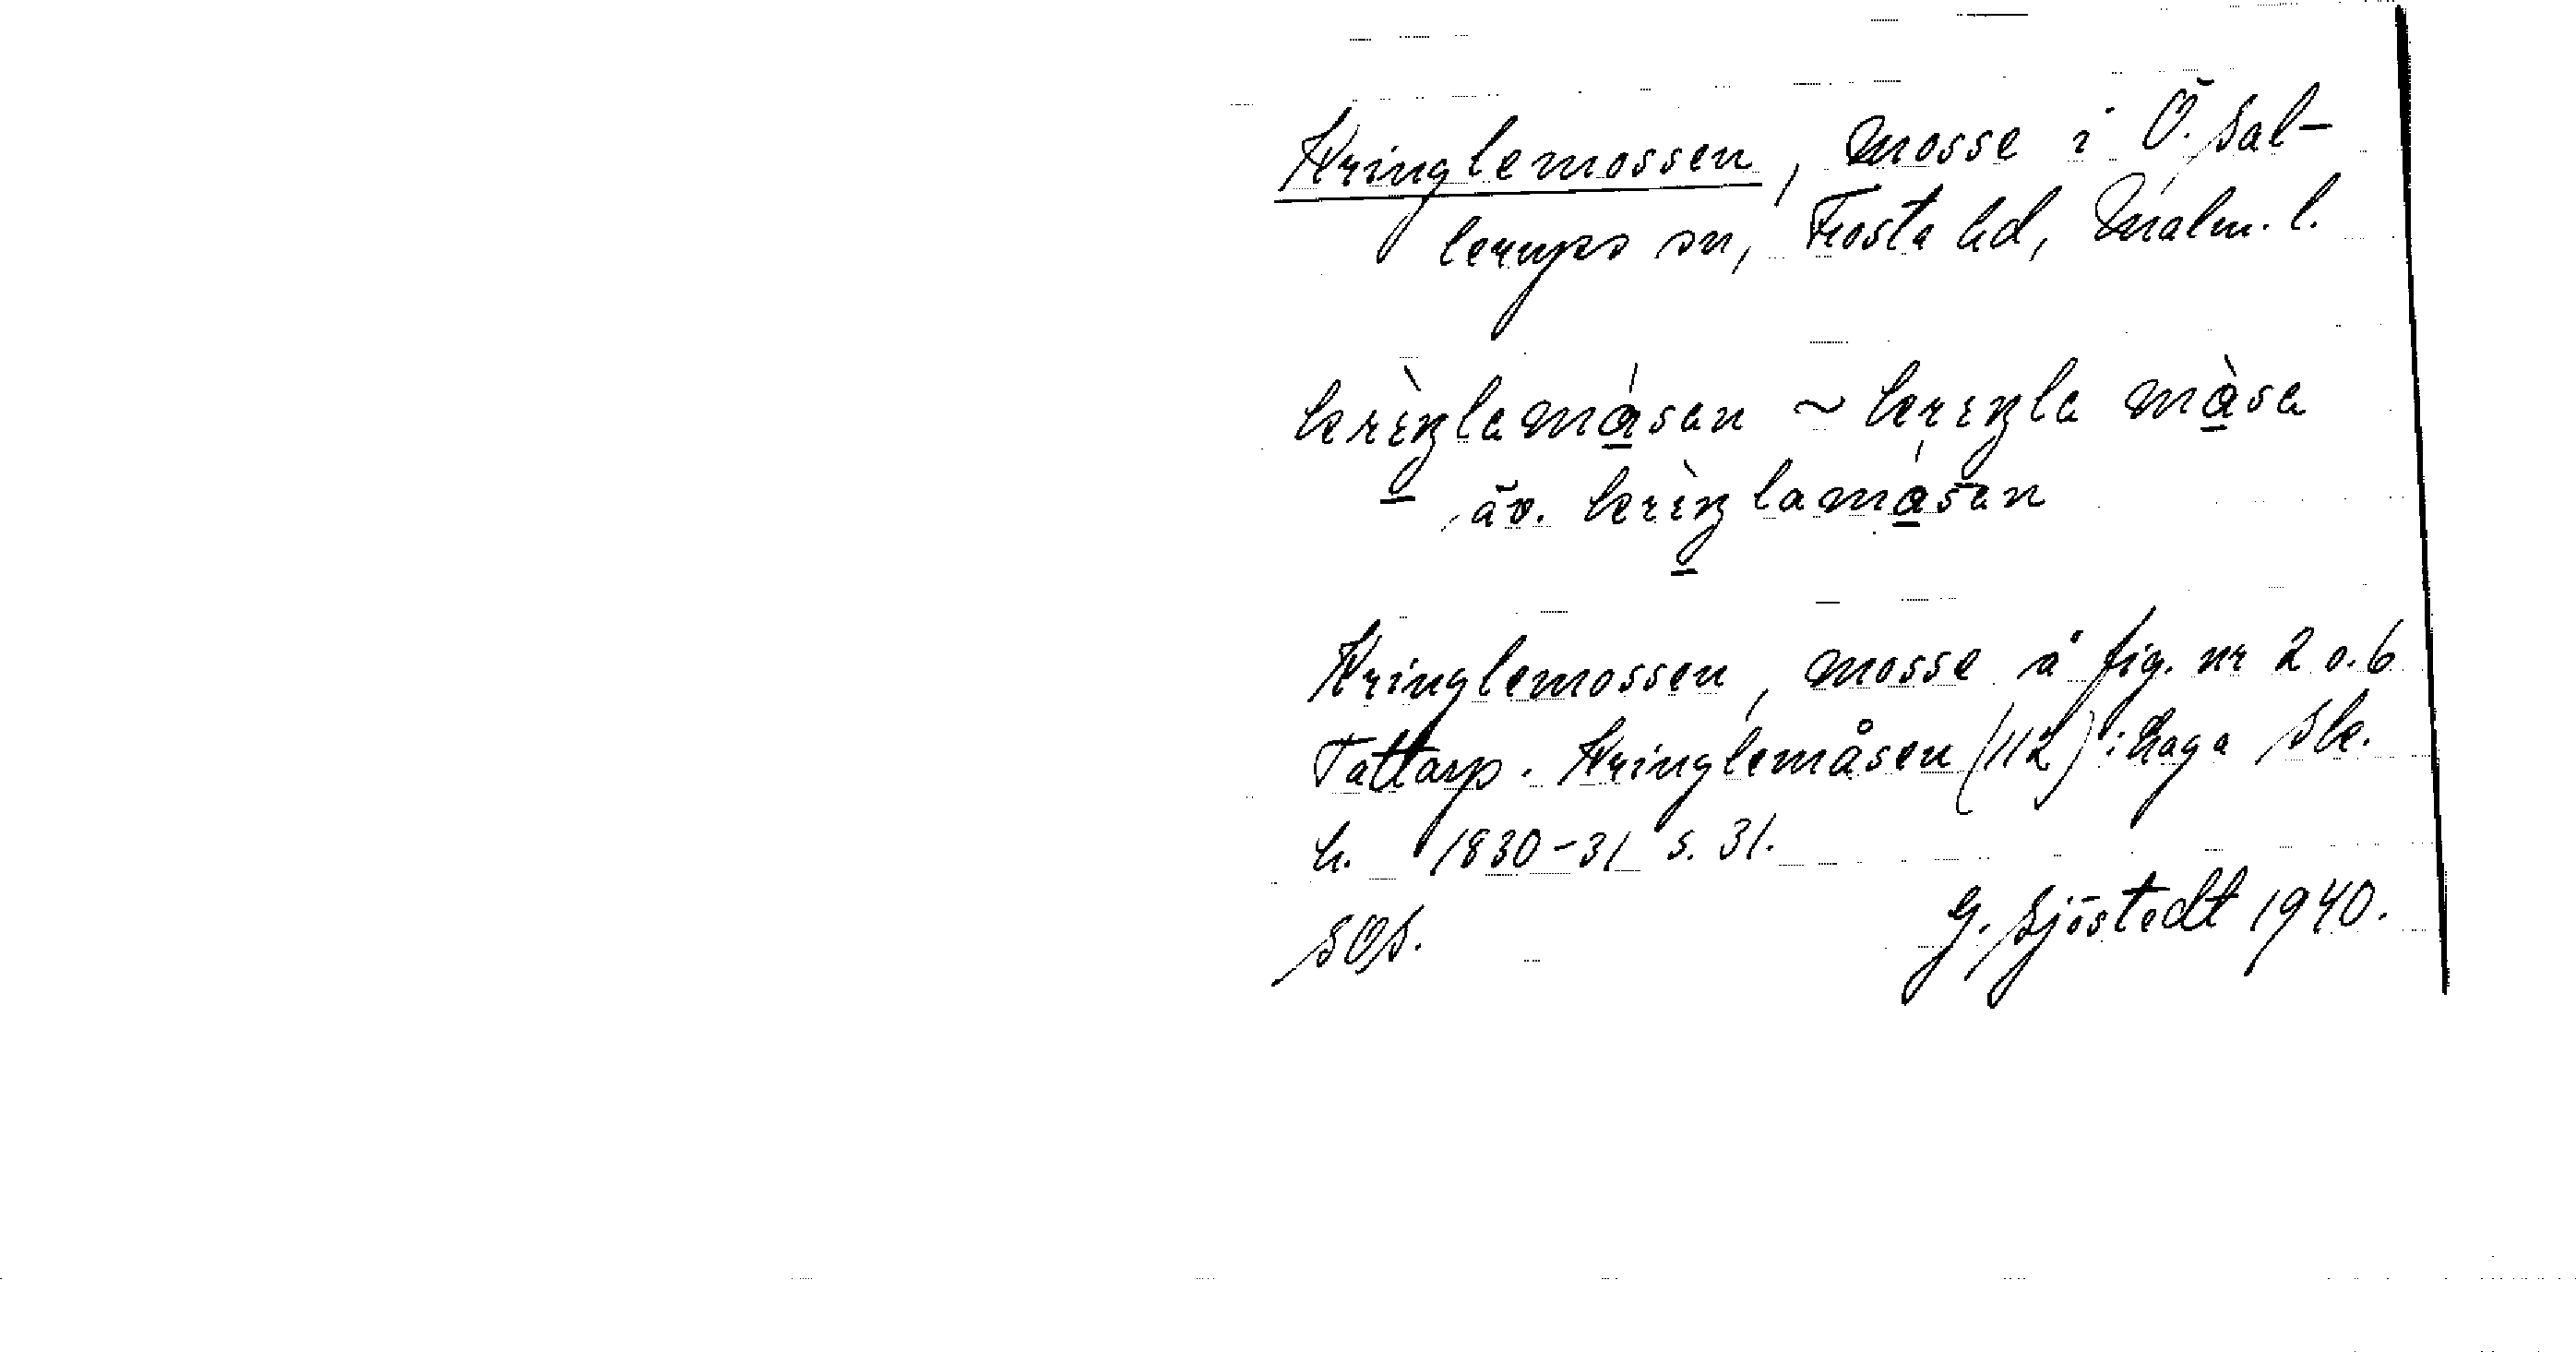 Kringlemossen, mosse i Ö. Sal-
lerups sn, Frosta hd, Malm. l.
krìŋlemǻsen ~ kriŋle må̀sa
äv. krìŋlamǻsen
Kringlemossen, mosse å fig. nr 2 o. 6
Tattarp. Kringlemåsen (112): Laga sk.
h. 1830-31 s. 31.
SOS.
G. Sjöstedt 1940.